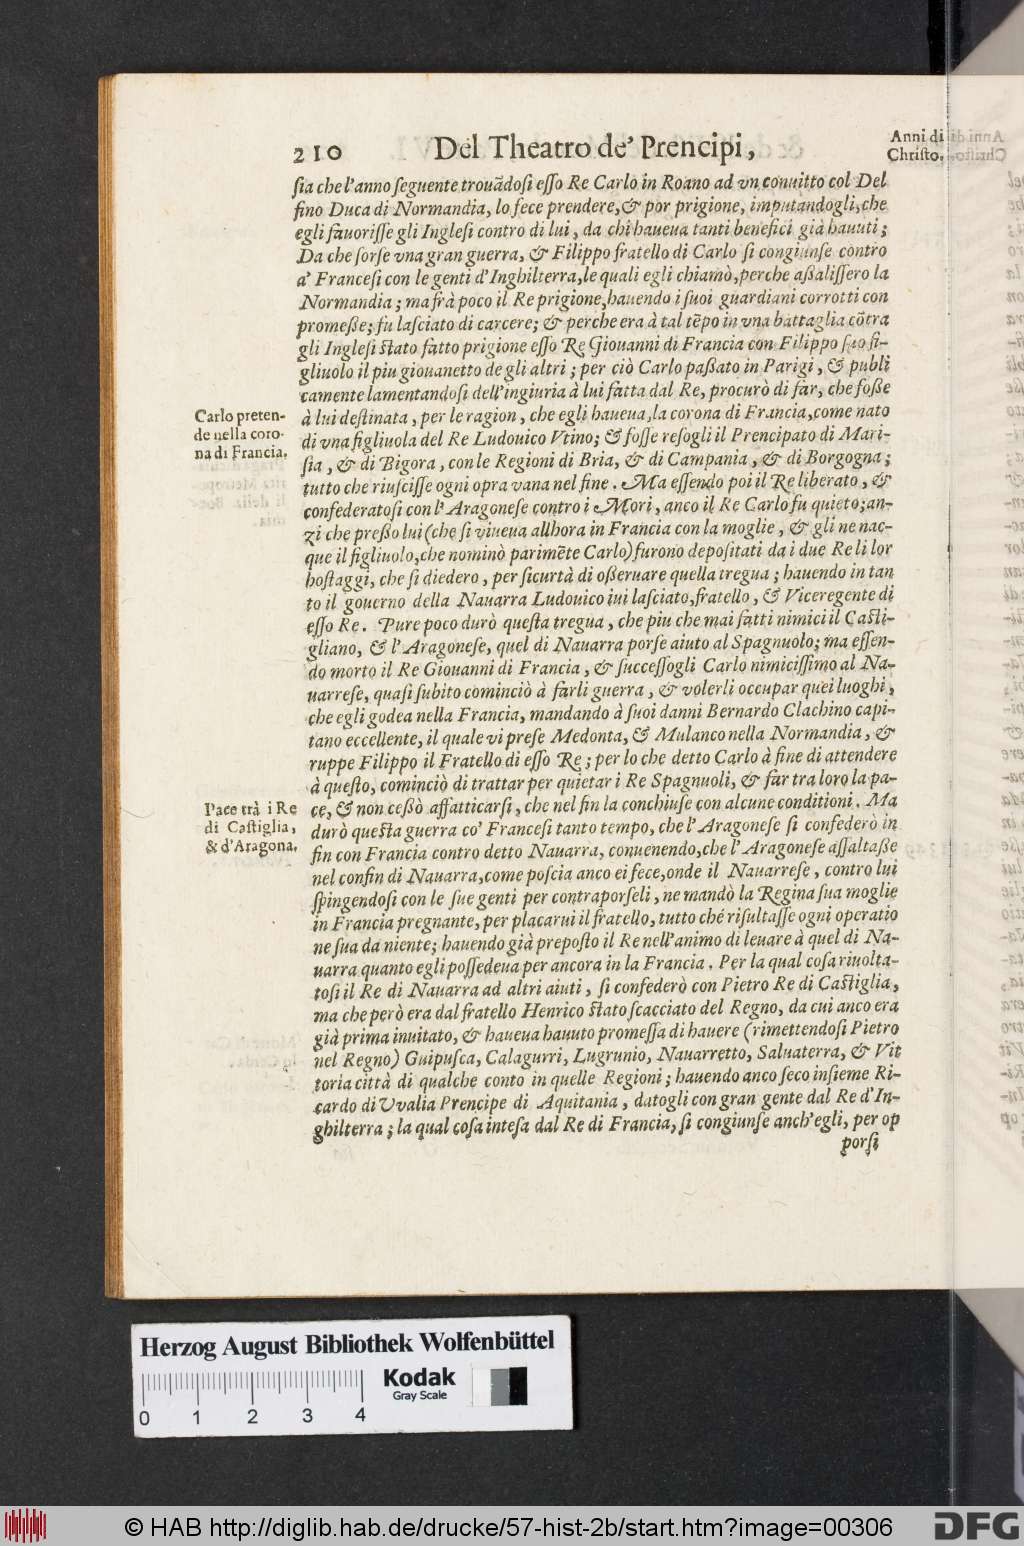 210 Del Theatro de' Prencipi,
Anni di
Christo.
ſia che l'anno ſeguente trouãdoſi eſſo Re Carlo in Roano ad vn conuitto col Del
fino Duca di Normandia, lo fece prendere, & por prigione, imputandogli, che
egli fauoriſſe gli Ingleſi contro di lui, da chi haueua tanti benefici già hauuti;
Da che ſorſe vna gran guerra, & Filippo fratello di Carlo ſi congiunſe contro
a' Franceſi con le genti d'Inghilterra, le quali egli chiamò, perche aſſaliſſero la
Normandia; ma frà poco il Re prigione, hauendo i ſuoi guardiani corrotti con
promeſſe; fu laſciato di carcere; & perche era à tal tẽpo in vna battaglia cõtra
gli Ingleſi ſtato fatto prigione eſſo Re Giouanni di Francia con Filippo ſuo fi-
gliuolo il piu giouanetto de gli altri; per ciò Carlo paſſato in Parigi, & publi
camente lamentandoſi dell'ingiuria à lui fatta dal Re, procurò di far, che foſſe
Carlo preten-
de nella coro-
na di Francia.
à lui deſtinata, per le ragion, che egli haueua, la corona di Francia, come nato
di vna figliuola del Re Ludouico Vtino; & foſſe reſogli il Prencipato di Mari-
ſia, & di Bigora, con le Regioni di Bria, & di Campania, & di Borgogna;
tutto che riuſciſſe ogni opra vana nel fine. Ma eſſendo poi il Re liberato, &
confederatoſi con l'Aragoneſe contro i Mori, anco il Re Carlo fu quieto; an-
zi che preſſo lui (che ſi viueua allhora in Francia con la moglie, & gli ne nac-
que il figliuolo, che nominò parimẽte Carlo) furono depoſitati da i due Re li lor
hoſtaggi, che ſi diedero, per ſicurtà di oſſeruare quella tregua; hauendo in tan
to il gouerno della Nauarra Ludouico iui laſciato, fratello, & Viceregente di
eſſo Re. Pure poco durò queſta tregua, che piu che mai fatti nimici il Caſti-
gliano, & l'Aragoneſe, quel di Nauarra porſe aiuto al Spagnuolo; ma eſſen-
do morto il Re Giouanni di Francia, & ſucceſſogli Carlo nimiciſſimo al Na-
uarreſe, quaſi ſubito cominciò à farli guerra, & volerli occupar quei luoghi,
che egli godea nella Francia, mandando à ſuoi danni Bernardo Clachino capi-
tano eccellente, il quale vi preſe Medonta, & Mulanco nella Normandia, &
ruppe Filippo il Fratello di eſſo Re; per lo che detto Carlo à fine di attendere
à queſto, cominciò di trattar per quietar i Re Spagnuoli, & far tra loro la pa-
Pace trà i Re
di Caſtiglia,
& d'Aragona.
ce, & non ceſſò affatticarſi, che nel fin la conchiuſe con alcune conditioni. Ma
durò queſta guerra co' Franceſi tanto tempo, che l'Aragoneſe ſi confederò in
fin con Francia contro detto Nauarra, conuenendo, che l'Aragoneſe aſſaltaſſe
nel confin di Nauarra, come poſcia anco ei fece, onde il Nauarreſe, contro lui
ſpingendoſi con le ſue genti per contraporſeli, ne mandò la Regina ſua moglie
in Francia pregnante, per placarui il fratello, tutto ché riſultaſſe ogni operatio
ne ſua da niente; hauendo già prepoſto il Re nell'animo di leuare à quel di Na-
uarra quanto egli poſſedeua per ancora in la Francia. Per la qual coſa riuolta-
toſi il Re di Nauarra ad altri aiuti, ſi confederò con Pietro Re di Caſtiglia,
ma che però era dal fratello Henrico ſtato ſcacciato del Regno, da cui anco era
già prima inuitato, & haueua hauuto promeſſa di hauere (rimettendoſi Pietro
nel Regno) Guipuſca, Calagurri, Lugrunio, Nauarretto, Saluaterra, & Vit
toria città di qualche conto in quelle Regioni; hauendo anco ſeco inſieme Ri-
cardo di Vvalia Prencipe di Aquitania, datogli con gran gente dal Re d'In-
ghilterra; la qual coſa inteſa dal Re di Francia, ſi congiunſe anch'egli, per op
porſi
Herzog August Bibliothek Wolfenbüttel
Kodak
Gray Scale
0 1 2 3 4
© HAB http://diglib.hab.de/drucke/57-hist-2b/start.htm?image=00306
DFG